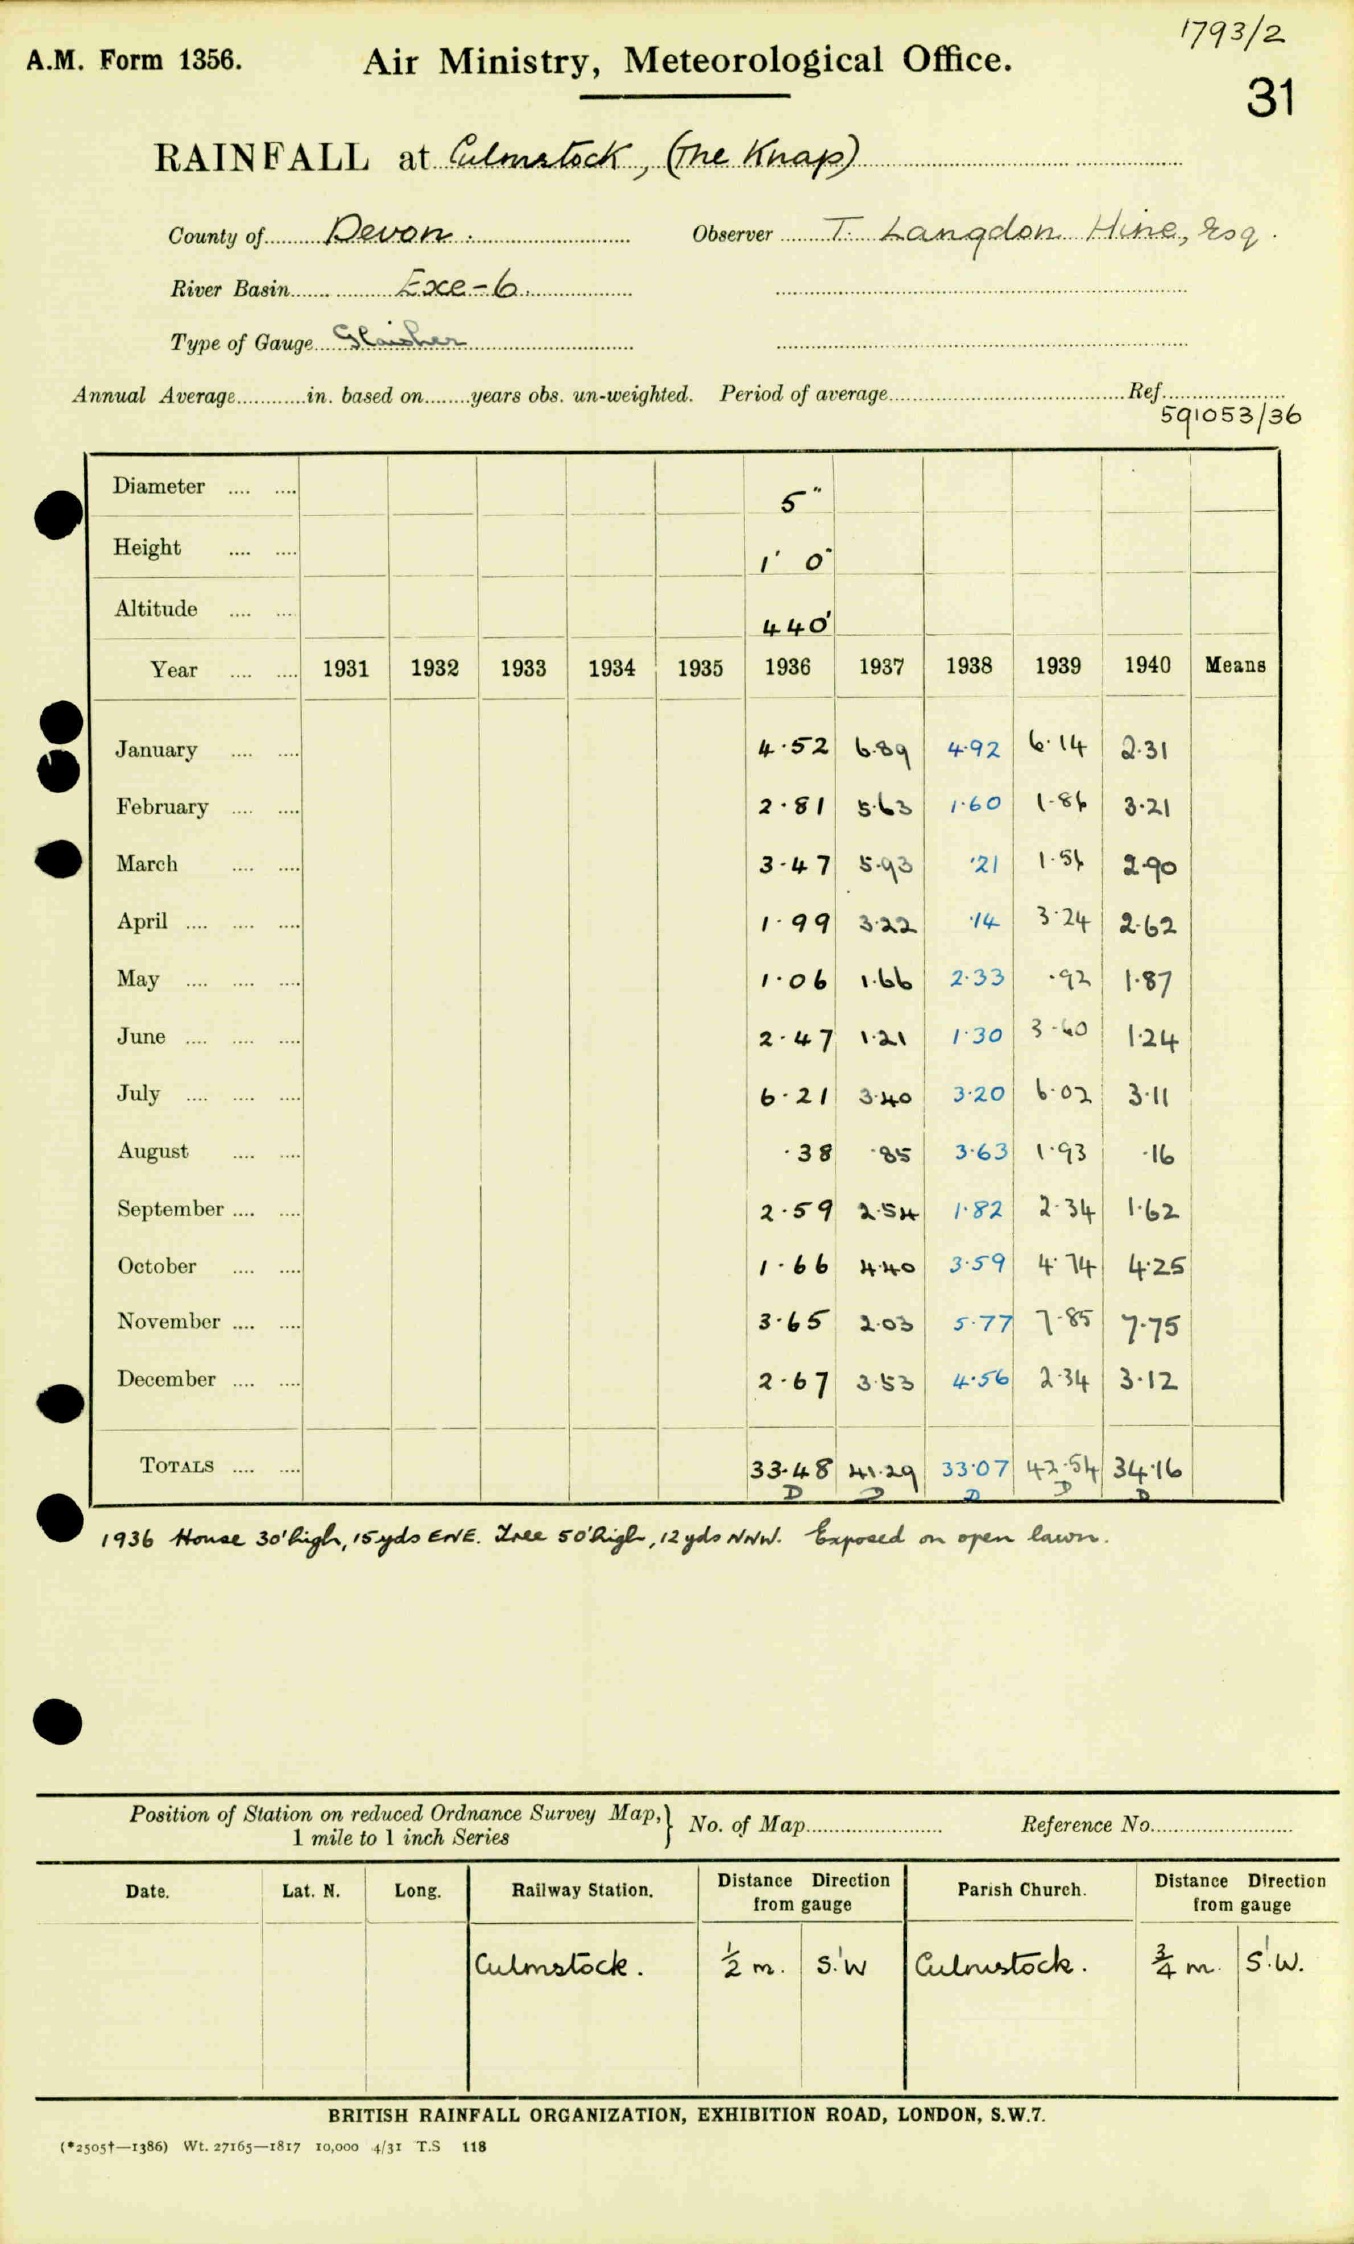 1793/2
A.M. Form 1356. Air Ministry, Meteorological Office.
31
RAINFALL at Culmstock, (The Knap)
County of Devon. Observer T. Langdon Hine, Esq.
River Basin Exe-6.
Type of Gauge Glaisher
Annual Average in. based on years obs. un-weighted. Period of average Ref. 
591053/36
Diameter 5"
Height 1' 0"
Altitude 440'
Year 1931 1932 1933 1934 1935 1936 1937 1938 1939 1940 Means
January 4·52 6·89 4·92 6·14 2·31
February 2·81 5·63 1·60 1·86 3·21
March 3·47 5·93 ·21 1·56 2·90
April 1·99 3·22 ·14 3·24 2·62
May 1·06 1·66 2·33 ·92 1·87
June 2·47 1·21 1·30 3·60 1·24
July 6·21 3·40 3·20 6·02 3·11
August ·38 ·85 3·63 1·93 ·16
September 2·59 2·54 1·82 2·34 1·62
October 1·66 4·40 3·59 4·74 4·25
November 3·65 2·03 5·77 7·85 7·75
December 2·67 3·53 4·56 2·34 3·12
TOTALS 33·48 41·29 33·07 42·54 34·16
D D D D D
1936 House 30' high, 15 yds ENE. Tree 50' high, 12 yds NNW. Exposed on open lawn.
Position of Station on reduced Ordnance Survey Map, } No. of Map Reference No.
1 mile to 1 inch Series
Date. Lat. N. Long. Railway Station. Distance Direction from gauge Parish Church. Distance Direction from gauge
Culmstock. ½ m. S.W Culmstock. ¾ m. S.W.
BRITISH RAINFALL ORGANIZATION, EXHIBITION ROAD, LONDON, S.W.7.
(*2505†—1386) Wt. 27165—1817 10,000 4/31 T.S 118